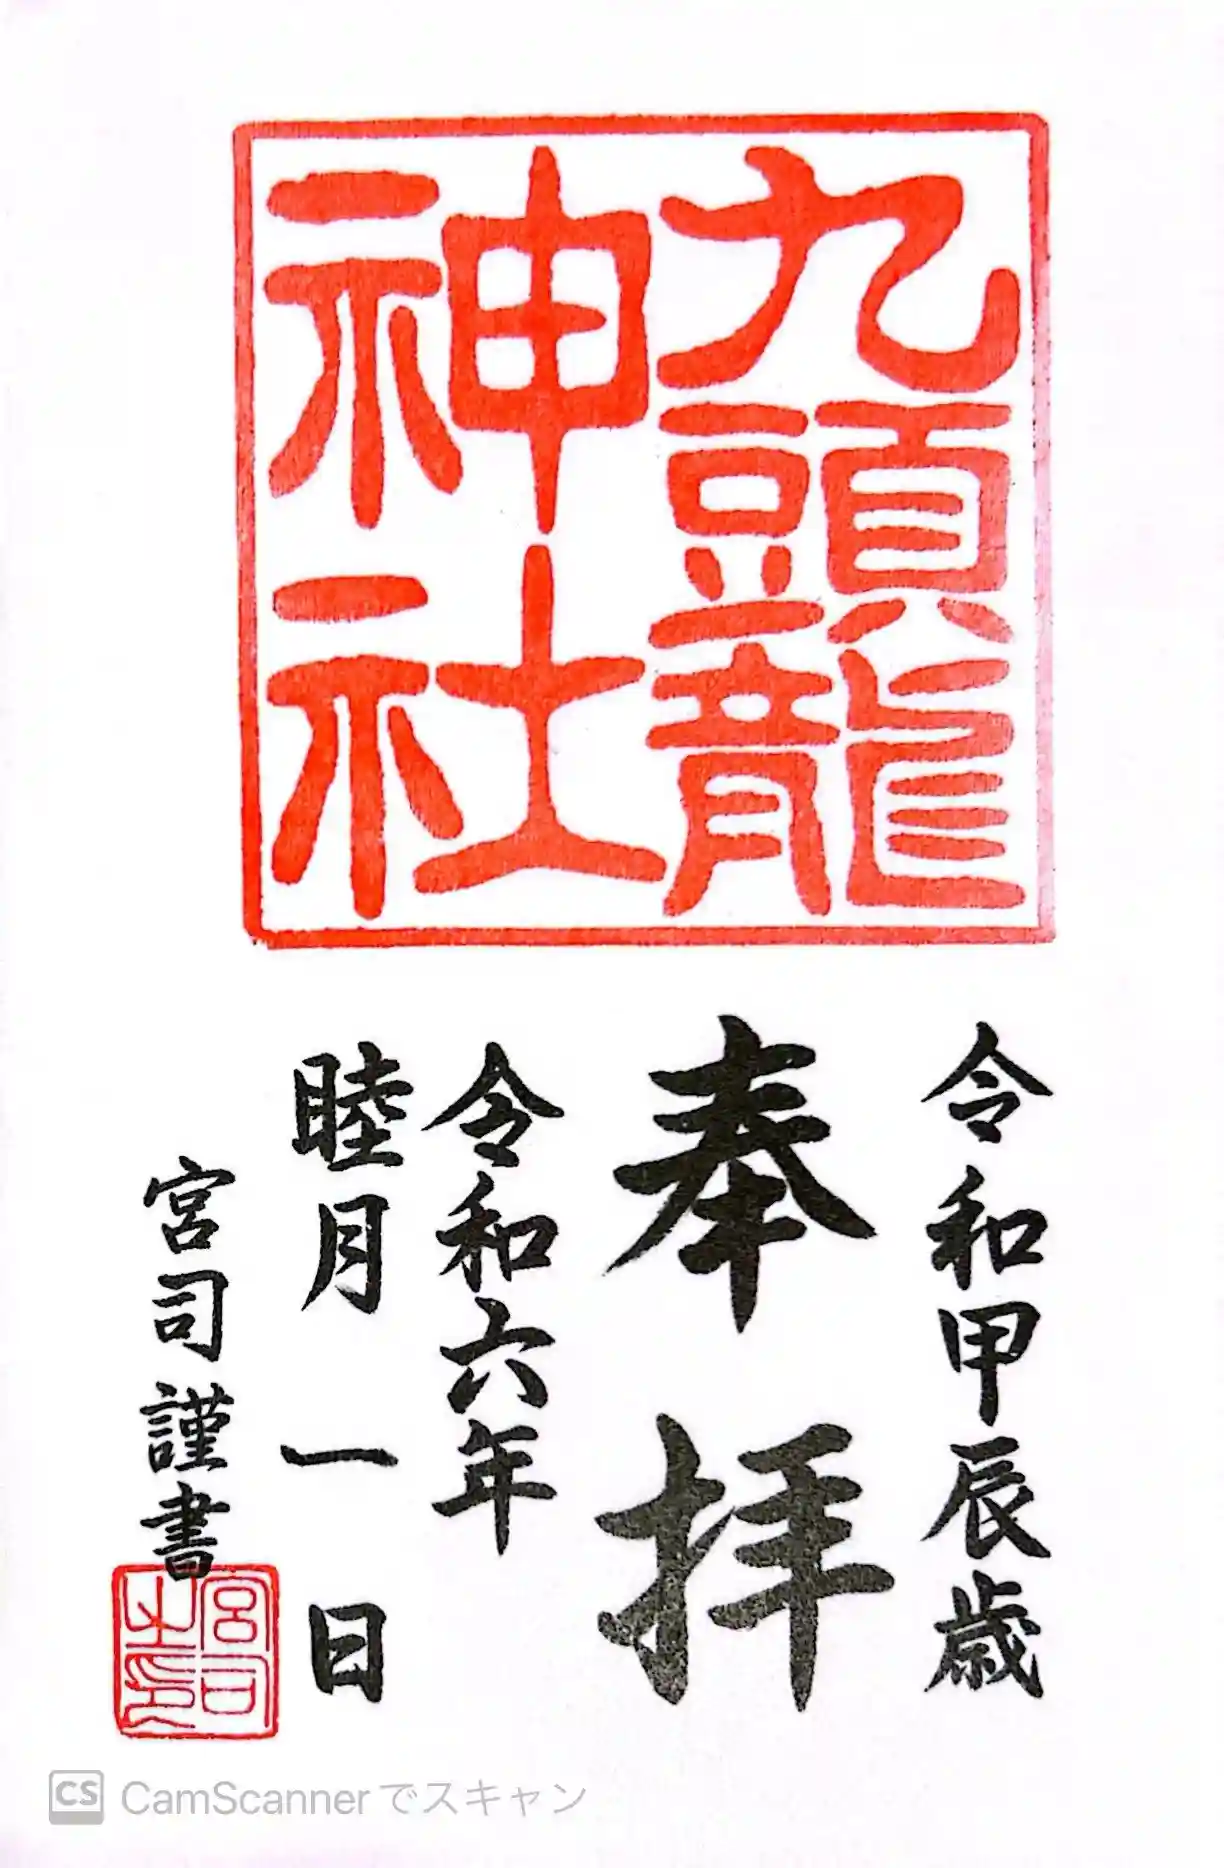 九頭龍
神社
令和甲辰歳
奉拝
令和六年
睦月一日
宮司謹書
宮司
之印
CS CamScannerでスキャン